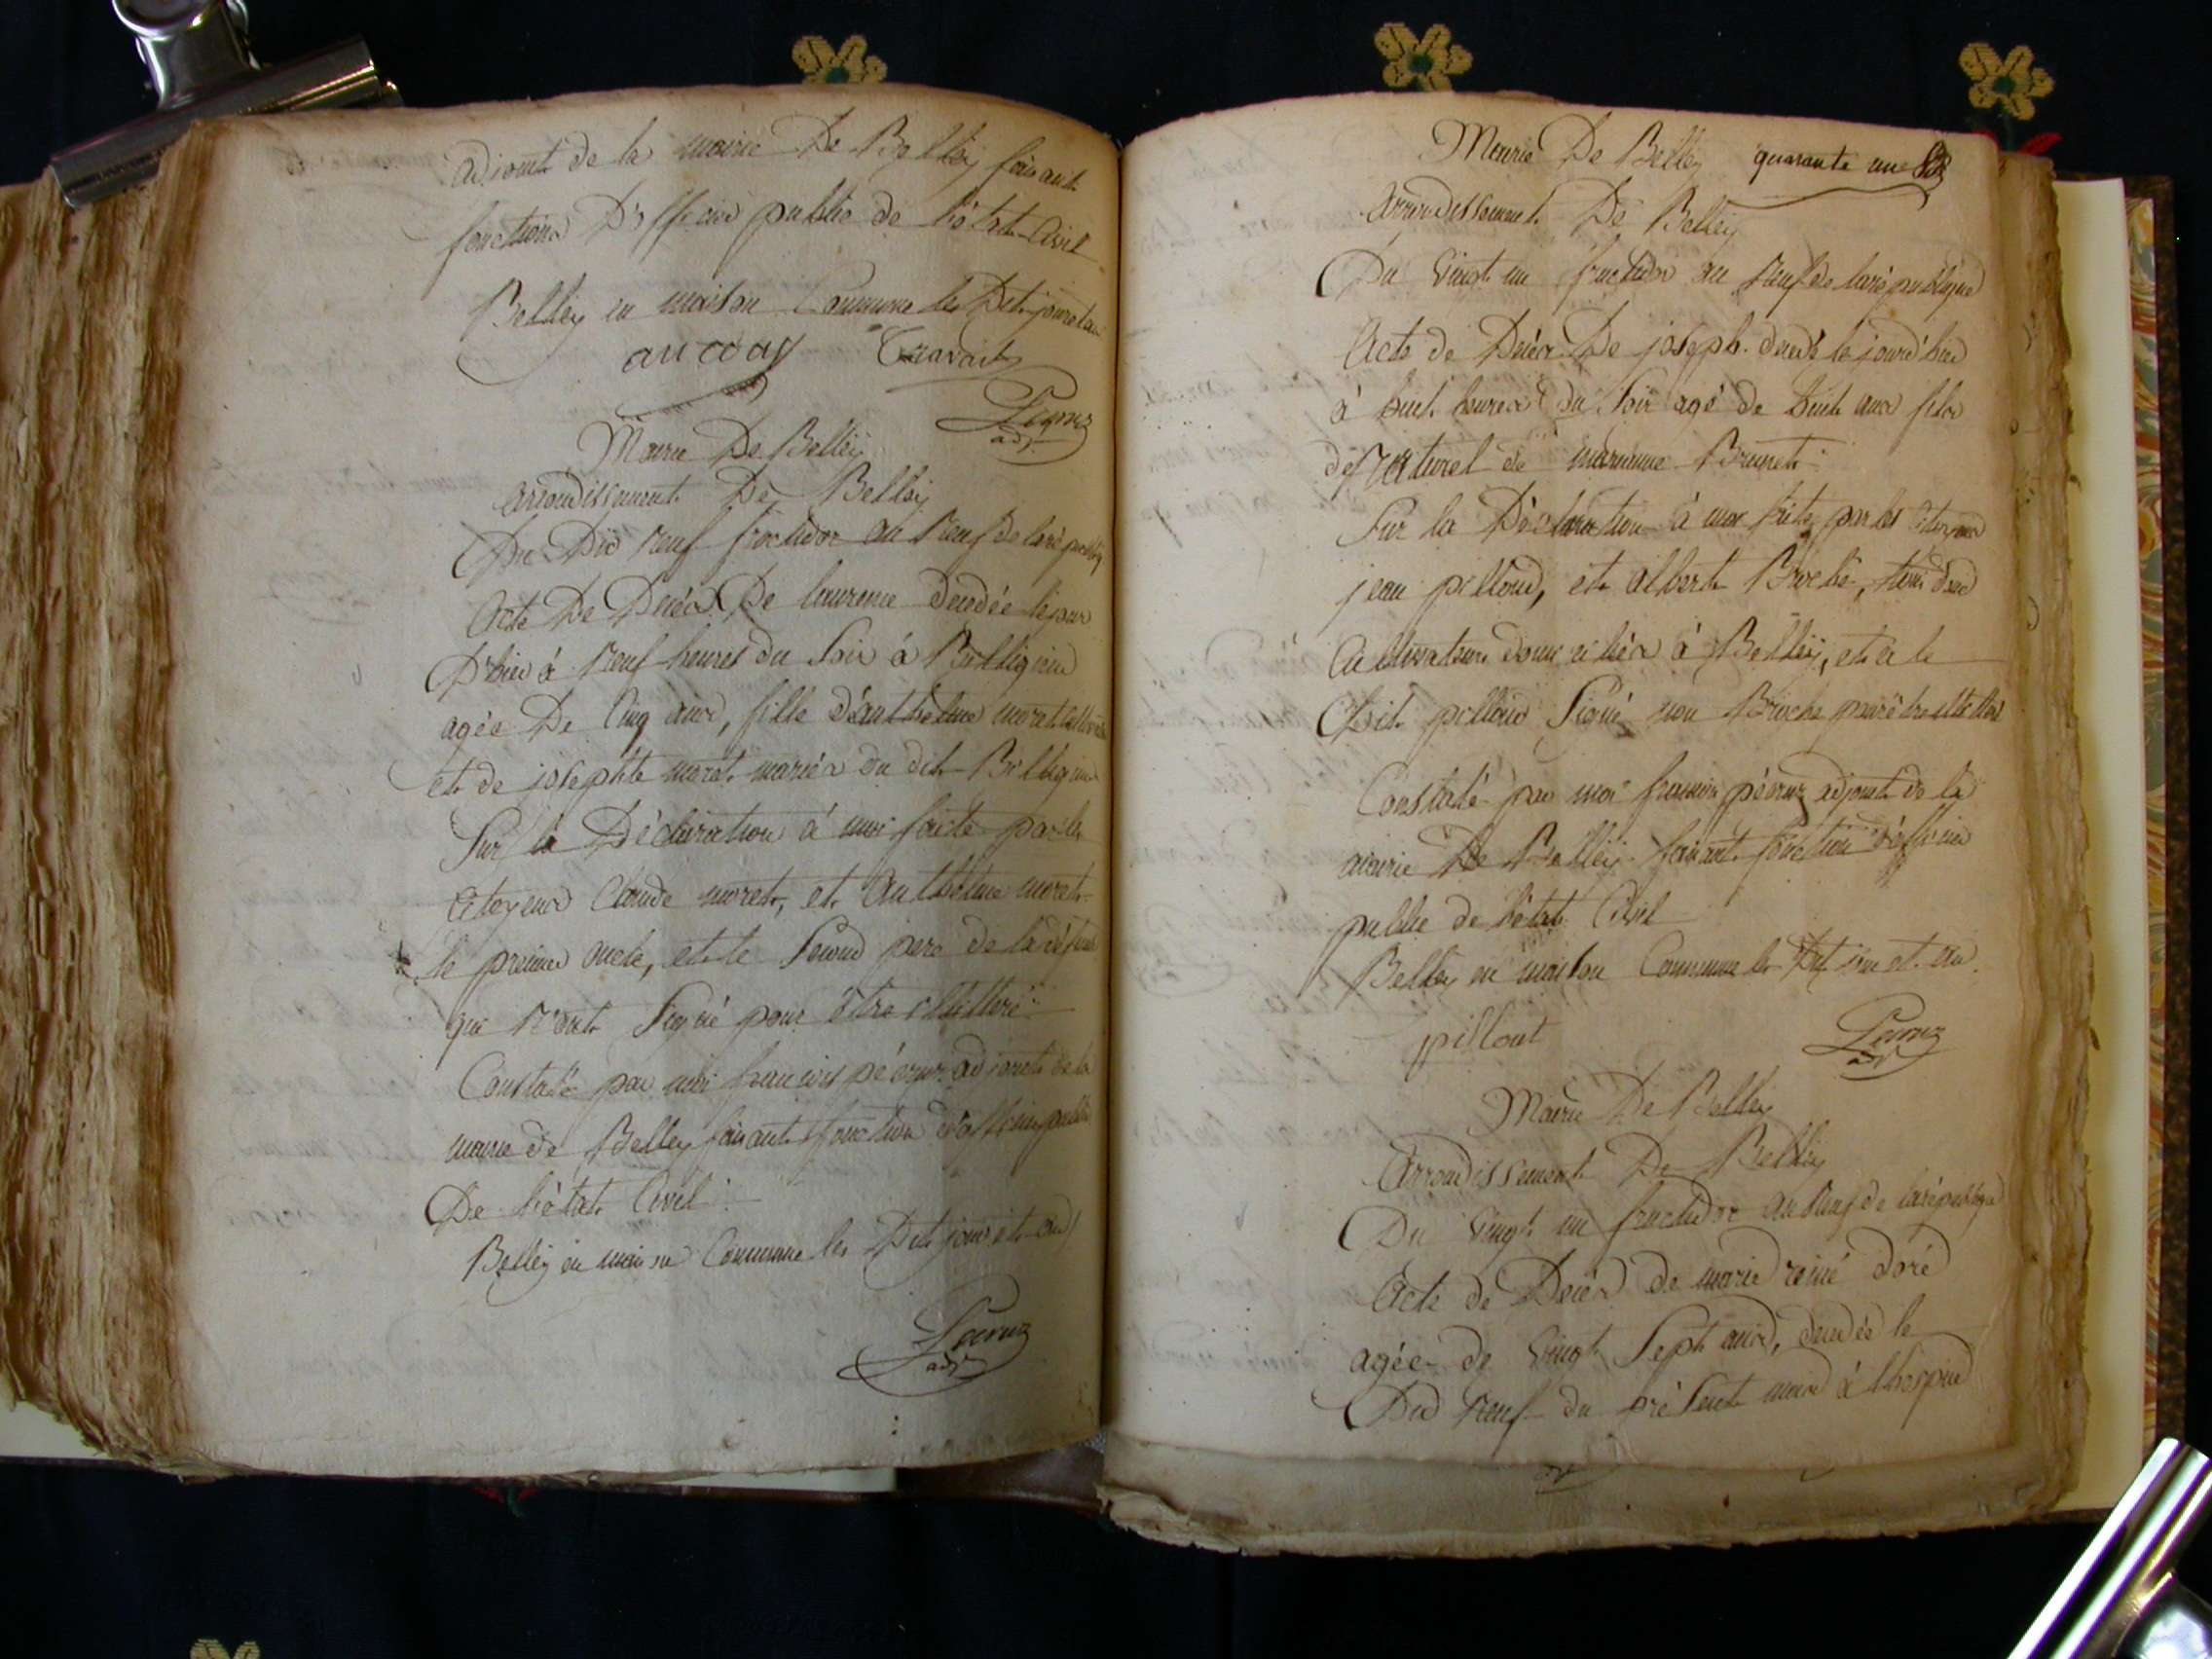 adjoint de la mairie De Belley faisant
fonctions D'officier public de l'état Civil
Belley en maison Commune les Dit jour et an
Mairie De Belley
arrondissement De Belley
Du Dix neuf fructidor an neuf de la républiq
Acte De Décès De laurence decedée le jour
D'hier à neuf heures du Soir à Billignieu
agée De Cinq ans, fille d'anthelme moret
et de josephte moret mariés du dit Billignieu
Sur la Déclaration à moi faite par les
Citoyens Claude moret, et anthelme moret
le premier oncle, et le Second pere de la défunte
qui n'ont Signé pour être illitteré
Constaté par moi françois péornz adjoint de la
mairie de Belley faisant fonction d'officier public
De l'état Civil
Belley en maison Commune les Dit jour et an
adjt
Mairie De Belley quarante une
arrondissement De Belley
Du Vingt un fructidor an neuf de la république
Acte de Décès De joseph decedé le jour d'hier
à huit heures du Soir agé de huit ans fils
naturel de marianne Brunet
Sur la Déclaration à moi faite par les Citoyens
jean pilloud, et albert Broche, tous deux
Cultivateurs domiciliés à Belley, et a le
Dit pilloud Signé non Broche pour être illitteré
Constaté par moi françois péornz adjoint de la
mairie De Belley faisant fonction d'officier
public de l'état Civil
Belley en maison Commune les Dit jour et an
pillout
Mairie De Belley
Arrondissement De Belley
Du Vingt un fructidor an neuf de la république
Acte de Décès de marie doré
agée de Vingt Sept ans, decedée le
Dix neuf du présent mois à l'hospice